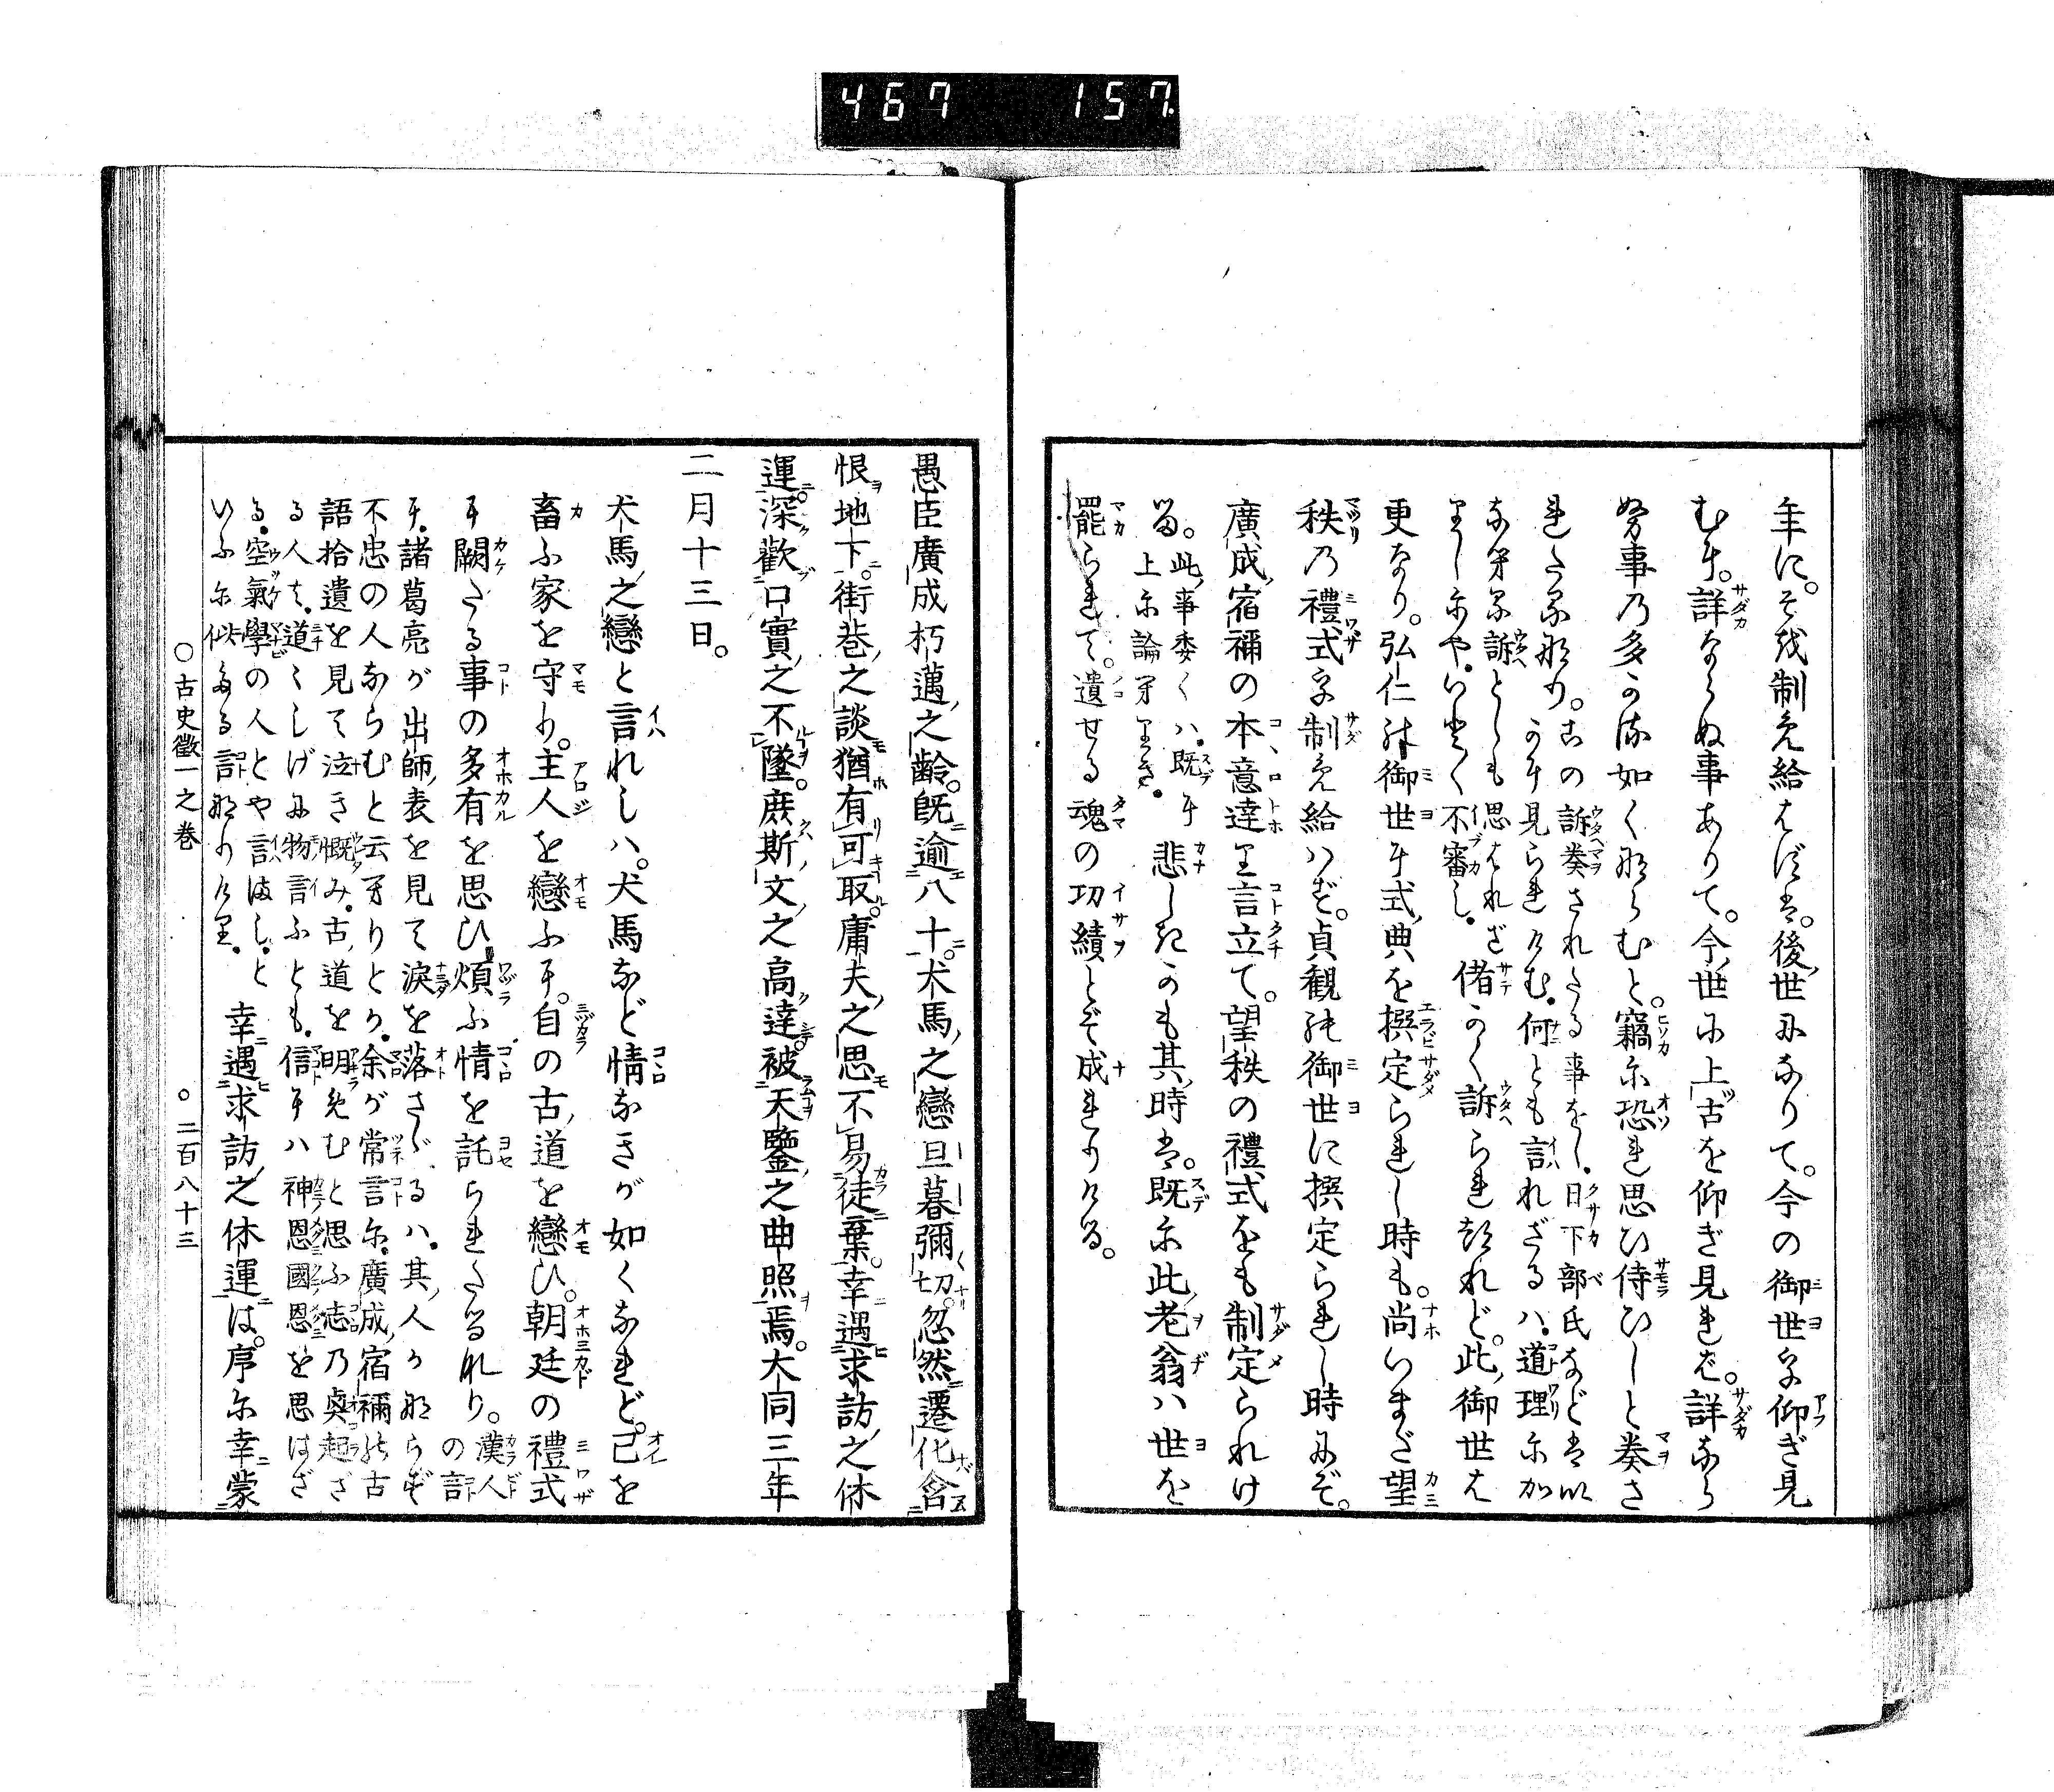 467 157
年に。そを制め給はずは。後世になりて。今の御世を仰ぎ見
む事。詳ならぬ事ありて。今世に上古を仰ぎ見れば。詳なら
ぬ事の多かる如くならむと。竊に恐れ思ひ侍ひしと奏さ
れたるなり。この訴奏されたる事をし。日下部氏などはい
かに見られけむ。何とも言れざるハ。道理にか
なす訴とも思はれざ
りしにや。いとゞ不審し。偖かく訴られたれど。此御世は
更なり。弘仁の御世に式典を撰定られし時も。尚いまだ望
秩の禮式を制め給ハず。貞觀の御世に撰定られし時にぞ。
廣成宿禰の本意達り言立て。望秩の禮式をも制定られけ
る。此事委くハ。既に
上に論へりき。悲しきかも其時は。既に此老翁ハ世を
罷られて。遺せる魂の功績とぞ成れりける。
愚臣廣成朽邁之齡。既逾八十。犬馬之戀旦暮彌切。忽然遷化含
恨地下。街巷之談猶有可取。庸夫之思不易徒棄。幸遇求訪之休
運。深歡口實之不墜。庶斯文之高達。被天鑒之曲照焉。大同三年
二月十三日。
犬馬之戀と言れしハ。犬馬など情なきが如くなれど。己を
畜ふ家を守り。主人を戀ふ。自の古道を戀ひ。朝廷の禮式
に闕たる事の多有を思ひ煩ふ情を託られたるなり。漢人
の言
に。諸葛亮が出師表を見て淚を落さゞるハ。其人かならず
不忠の人ならむと云へりとか。余が常言に。廣成宿禰の古
語拾遺を見て泣き慨み。古道を明めむと思ふ志の奐起ざ
る人は。道々しげに物言ふとも。信にハ神恩國恩を思はざ
る。空氣學の人とや言まし。と
いふに似たる言なりけり。幸遇求訪之休運は。序に幸蒙
○古史徵一之卷 ○二百八十三